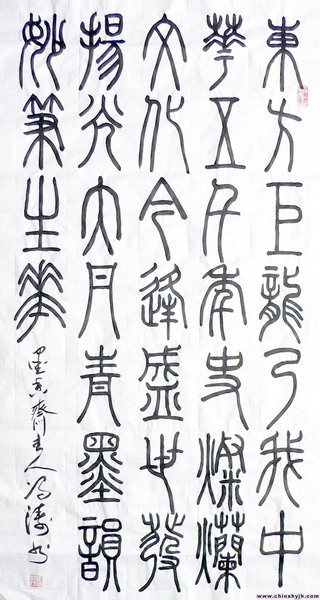 東方巨龍乃我中
華五千年史燦爛
文化今逢盛世發
揚光大丹青墨韻
妙筆生花
墨香齋主人冯涛书
www.chinahyjk.com